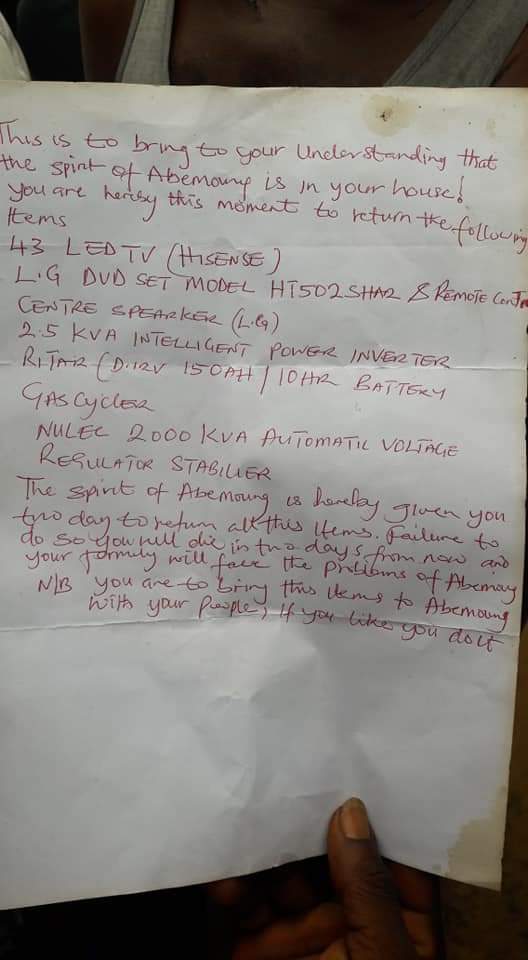 This is to bring to your Understanding that
the spirit of Abemoung is in your house!
you are hereby this moment to return the following
Items
43 LED TV (HISENSE)
L.G DVD SET MODEL HT502SHAR & Remote Contr
CENTRE SPEARKER (L.G)
2.5 KVA INTELLIGENT POWER INVERTER
RITAIR (D.12V 150AH/10HR BATTERY
GAS Cycler
NULEC 2000 KVA AUTOMATIC VOLTAGE
REGULATOR STABILIER
The spirit of Abemoung is hereby given you
two day to return all this Items. Failure to
do so you will die in two days from now and
your formily will face the problems of Abemoung
N/B you are to bring this items to Abemoung
with your people, If you like you do it